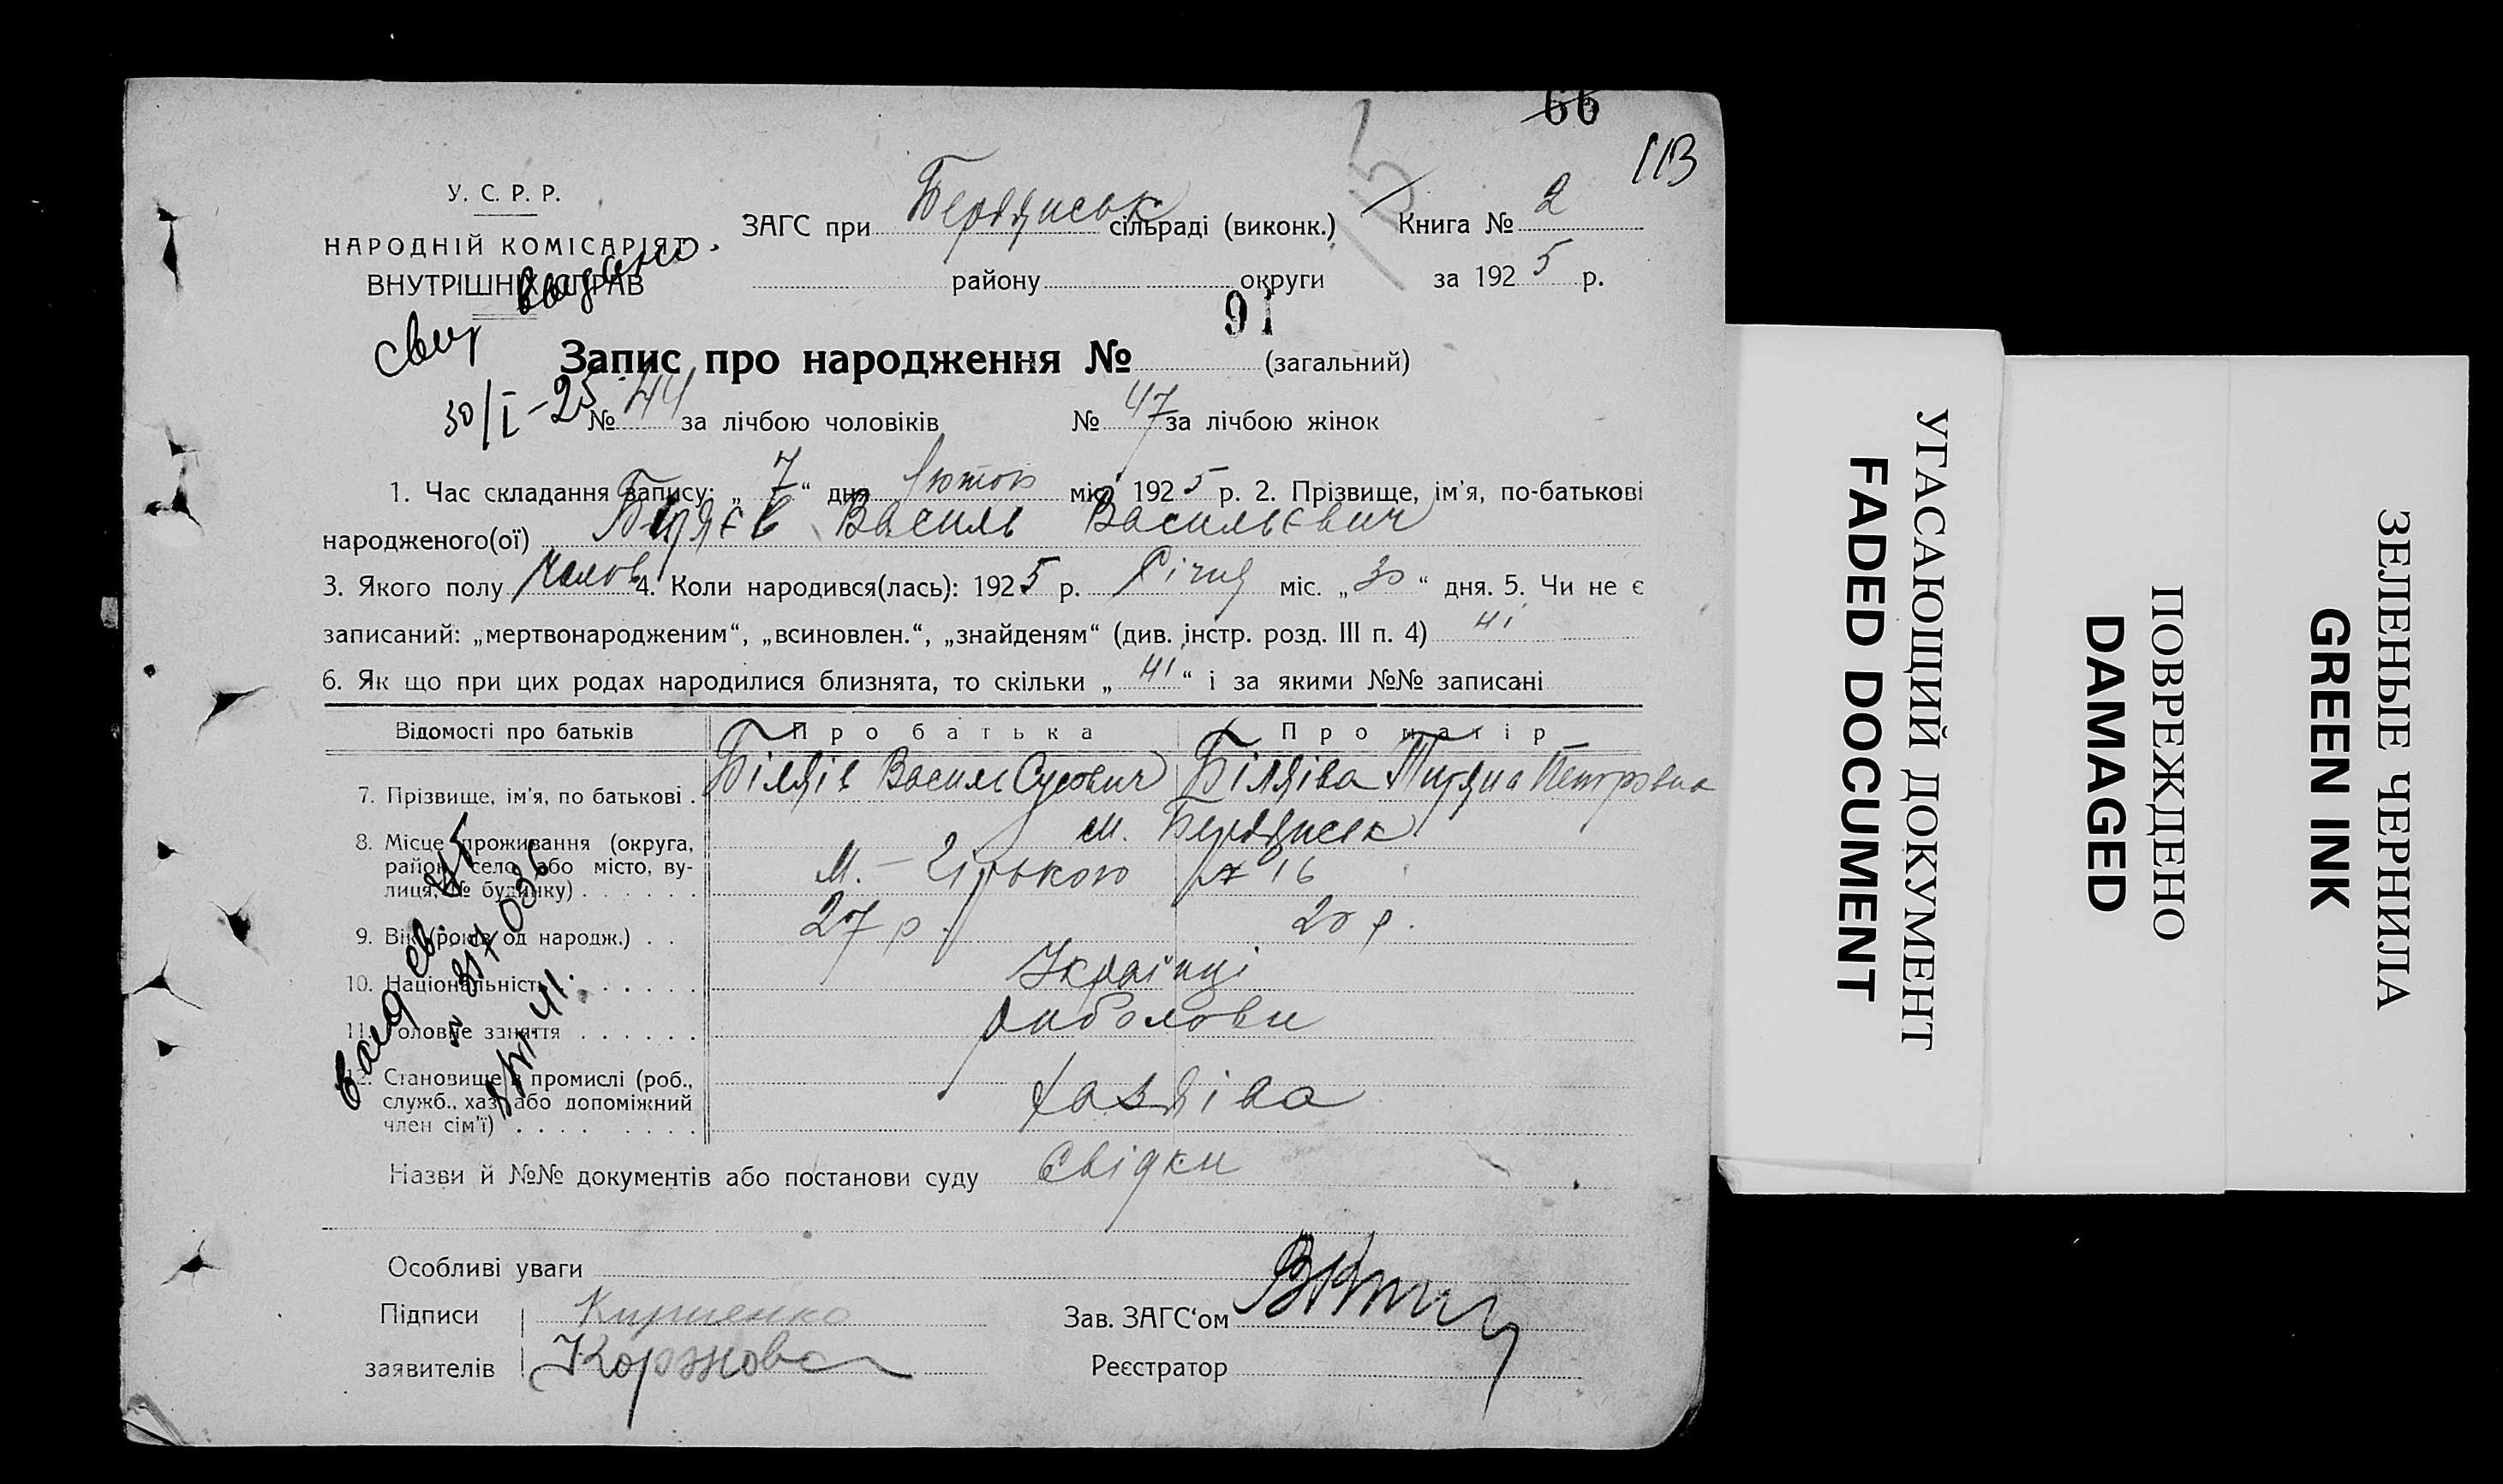 66
113
15
У. С. Р. Р.
НАРОДНІЙ КОМІСАРІЯТ
ВНУТРІШНІХ СПРАВ
ЗАГС при Бердянськ сільраді (виконк.)
району округи
Книга № 2
за 1925 р.
свид выдано.
30/I-25
Запис про народження № 91 (загальний)
№ 44 за лічбою чоловіків № 47 за лічбою жінок
1. Час складання запису: „7“ дня Лютого міс. 1925 р. 2. Прізвище, ім’я, по-батькові
народженого(ої) Василь Васильєвич
3. Якого полу Чолов. 4. Коли народився(лась): 1925 р. Січня міс. „30“ дня. 5. Чи не є
записаний: „мертвонародженим“, „всиновлен.“, „знайденям“ (див. інстр. розд. III п. 4) ні
6. Як що при цих родах народилися близнята, то скільки „ні“ і за якими №№ записані
Відомості про батьків Про батька Про матір
7. Прізвище, ім’я, по батькові . Біляїв Василь Біляїва Петровна
8. Місце проживання (округа, район, село, або місто, вулиця, № будинку) . . . . . . м. Бердянськ
М. - Гірького № 16
9. Вік (років од народж.) . . 27 р. 20 р.
10. Національність . . . . . . Українці
11. Головне заняття . . . . . . риболови
12. Становище в промислі (роб., служб., хаз. або допоміжний член сім’ї) . . . . . . . . хазяїва
Назви й №№ документів або постанови суду Свідки
Особливі уваги
Підписи Кириенко
заявителів Коржова
Зав. ЗАГС‘ом
Реєстратор
УГАСАЮЩИЙ ДОКУМЕНТ
FADED DOCUMENT
ПОВРЕЖДЕНО
DAMAGED
ЗЕЛЕНЫЕ ЧЕРНИЛА
GREEN INK